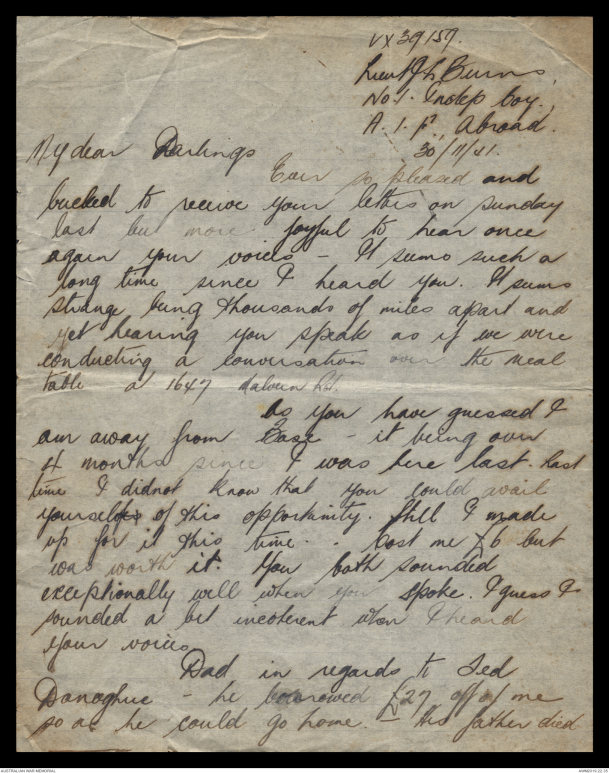 VX39159.
Lieut J L Burns,
No 1. Indep Coy.,
A. I. F. Abroad.
30/11/41.
My dear Darlings
Ever so pleased and
bucked to receive your letters on Sunday
last but more joyful to hear once
again your voices - It seems such a
long time since I heard you. It seems
strange being thousands of miles apart and
yet hearing you speak as if we were
conducting a conversation over the meal
table a 1647 Malvern Rd.
As you have guessed I
am away from Base - it being over
4 months since I was here last. Last
time I didnot know that you could avail
yourselves of this opportunity. Still I made
up for it this time. Cost me £6 but
was worth it. You both sounded
exceptionally well when you spoke. I guess I
sounded a bit incoherent when I heard
your voices.
Dad in regards to Ted
Donoghue - he borrowed £27 off of me
so as he could go home. - His father died
AUSTRALIAN WAR MEMORIAL